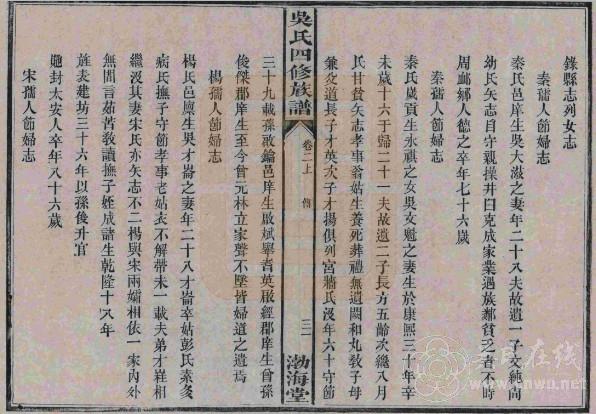 錄縣志列女志
秦孺人節婦志
秦氏邑庠生吳大潡之妻年二十八夫故遺一子文純尚
幼氏矢志自守親操井臼克成家業遇族鄰貧乏者不時
周卹鄉人德之卒年七十六歲
秦孺人節婦志
秦氏歲貢生永祺之女吳文魁之妻生於康熙三十年辛
未歲十六于歸二十一夫故遺二子長方五齡次纔八月
民甘貧矢志孝事翁姑生養死葬禮無遺闕和丸敎子母
兼父道長子才英次子才揚俱列宮牆氏沒年六十守節
吳氏四修族譜
卷二上
傳
三一
渤海堂
三十九載孫啟鑰邑庠生啟斌舉耆英啟經郡庠生曾孫
俊傑郡庠生至今曾元林立家聲不墜皆婦道之遺焉
楊孺人節婦志
楊氏邑廩生吳才崙之妻年二十八才崙卒姑彭氏素多
病氏撫子守節孝事老姑衣不解帶未一載夫弟才嶊相
繼沒其妻宋氏亦矢志不二楊與宋兩孀相依一家內外
無閒言茹苦敎讀撫子姪成諸生乾隆十八年
旌表建坊三十六年以孫俊升官
貤封太安人卒年八十六歲
宋孺人節婦志
民在线
www.cnwu.net